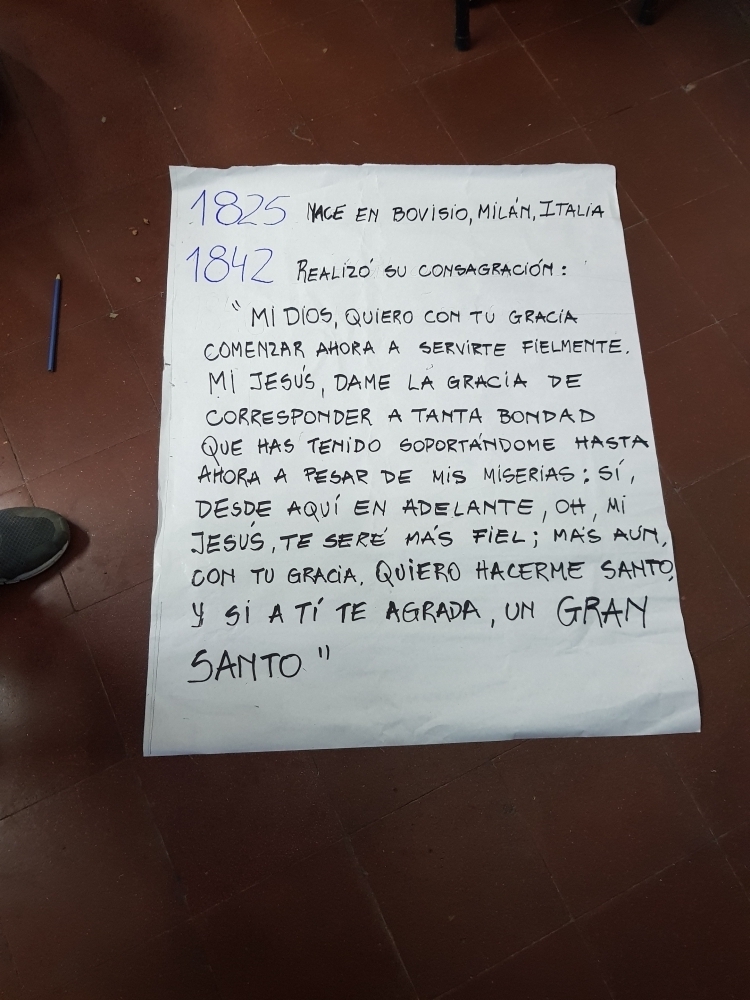 1825 NACE EN BOVISIO, MILÁN, ITALIA
1842 REALIZÓ SU CONSAGRACIÓN:
"MI DIOS, QUIERO CON TU GRACIA
COMENZAR AHORA A SERVIRTE FIELMENTE.
MI JESÚS, DAME LA GRACIA DE
CORRESPONDER A TANTA BONDAD
QUE HAS TENIDO SOPORTÁNDOME HASTA
AHORA A PESAR DE MIS MISERIAS: SÍ,
DESDE AQUÍ EN ADELANTE, OH, MI
JESÚS, TE SERÉ MÁS FIEL; MÁS AÚN,
CON TU GRACIA, QUIERO HACERME SANTO,
Y SI A TÍ TE AGRADA, UN GRAN
SANTO"